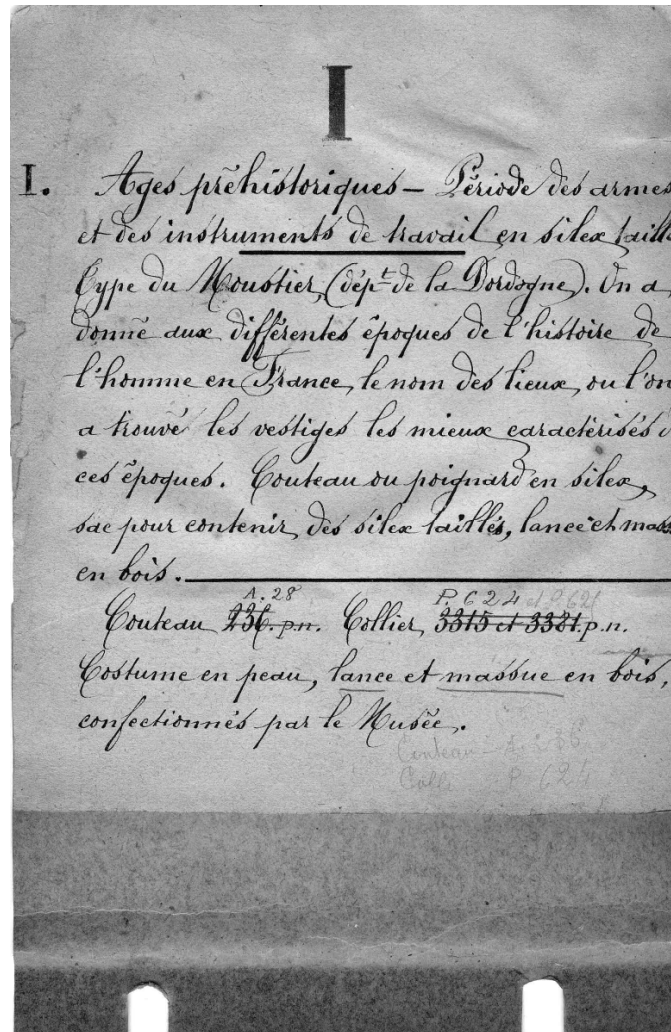 I
I. Ages préhistoriques – Période des armes
et des instruments de travail en silex taill
Type du Moustier, (dépt de la Dordogne). On a
donné aux différentes époques de l'histoire de
l'homme en France, le nom des lieux, ou l'on
a trouvé les vestiges les mieux caractérisés d
ces époques. Couteau ou poignard en silex,
sac pour contenir des silex taillés, lance et mass
en bois.
A. 28 P. 624 et P. 621
Couteau 236. p.n. Collier, 3315 et 3381. p.n.
Costume en peau, lance et massue en bois,
confectionnés par le Musée.
Couteau – A 236
Coll P. 624